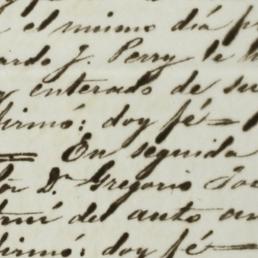 el mismo día
ardo J. Perry le
y enterado de su
firmó: doy fé=
= En seguida
Dn Gregorio
del auto an
firmó: doy fé—